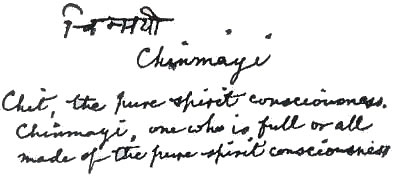 चिन्मयी
Chinmayi
Chit, the pure spirit consciousness.
Chinmayi, one who is full or all
made of the pure spirit consciousness